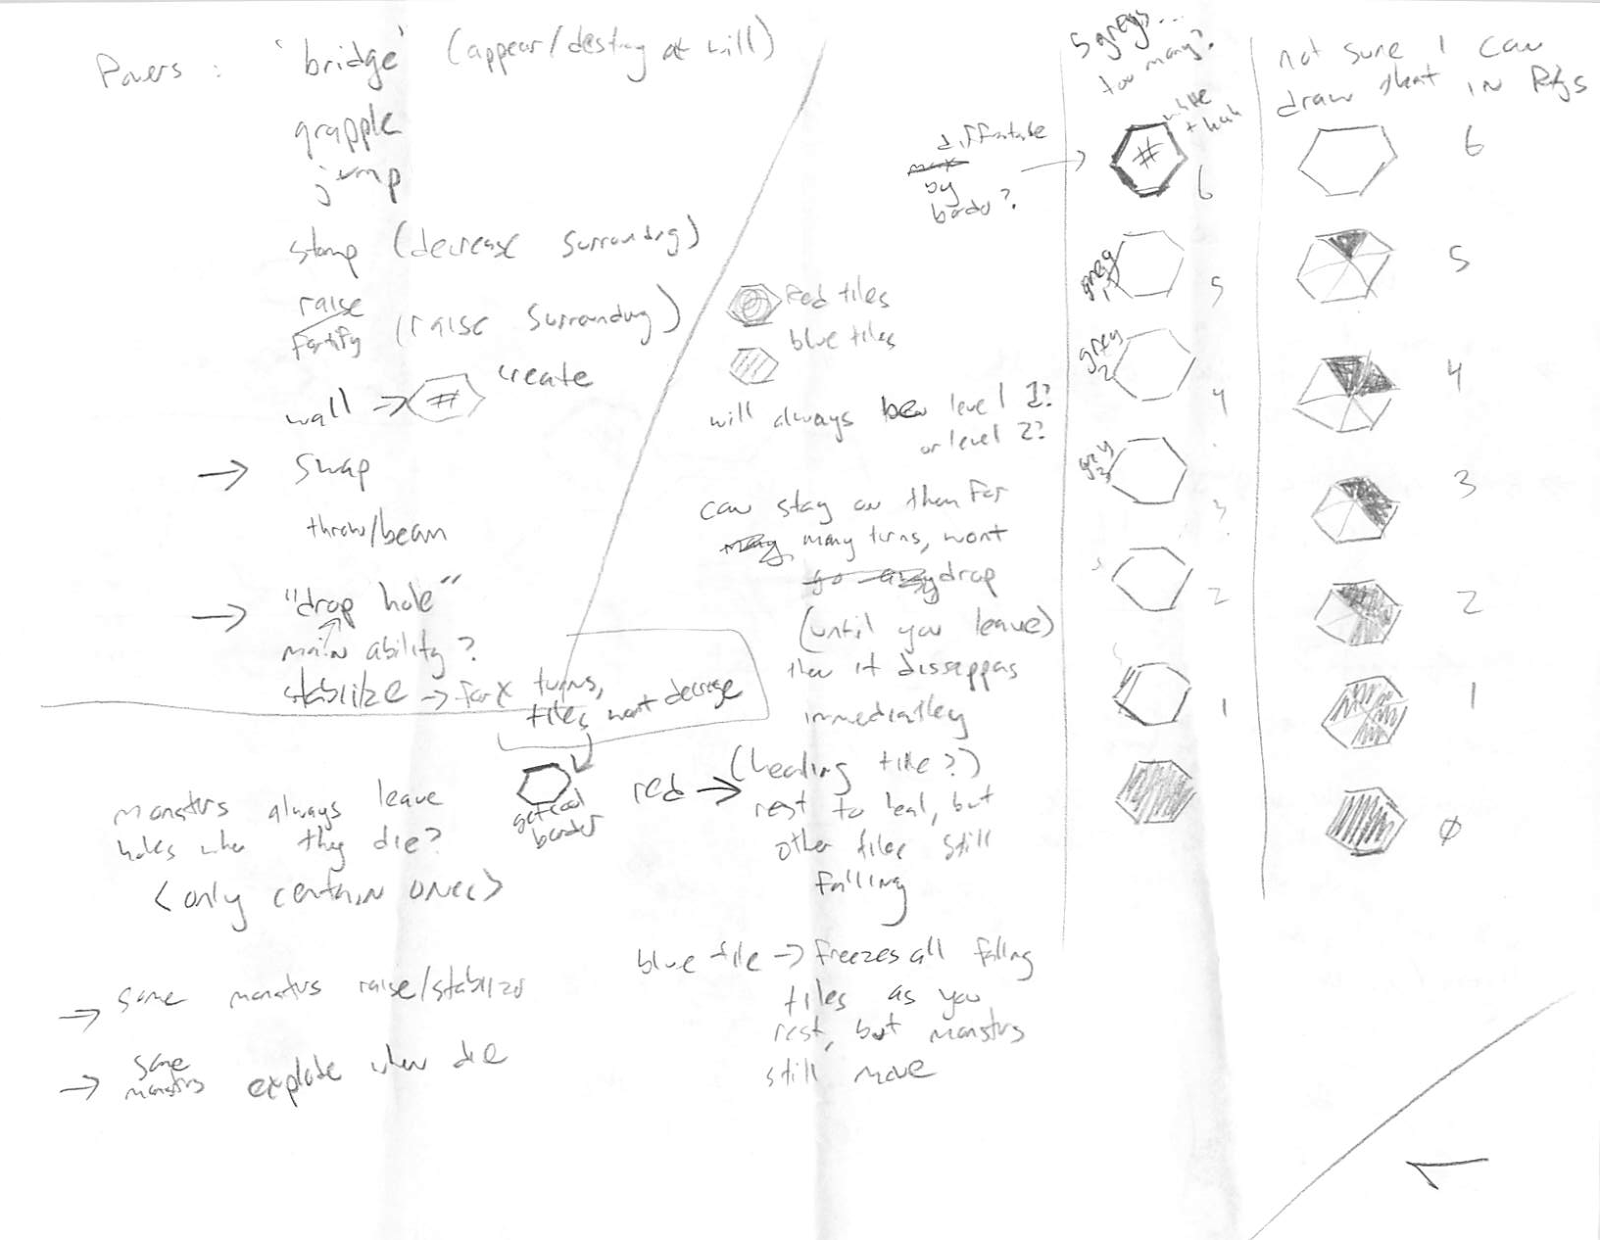 Powers : 'bridge' (appear/destroy at will)
grapple
jump
stomp (decrease surrounding)
raise
fortify (raise surroundng)
wall → # create
→ swap
throw/beam
→ "drop hole"
main ability?
stabilize → for x turns,
tiles wont decrease
get cool
border
monsters always leave
holes when they die?
<only certain ones>
→ some monsters raise/stabilize
→ some
monsters explode when die
Red tiles
blue tiles
will always be level 1?
or level 2?
can stay on them for
many turns, wont
go away drop
(until you leave)
then it dissappears
immediatley
red → (healing tile?)
rest to heal, but
other tiles still
falling
blue tile → freezes all falling
tiles as you
rest, but monsters
still move
5 greys...
too many?
white
+ hash
by
border?
#
6
grey
1
5
grey
2
4
grey
3
3
2
1
not sure I can
draw that in
6
5
4
3
2
1
ø